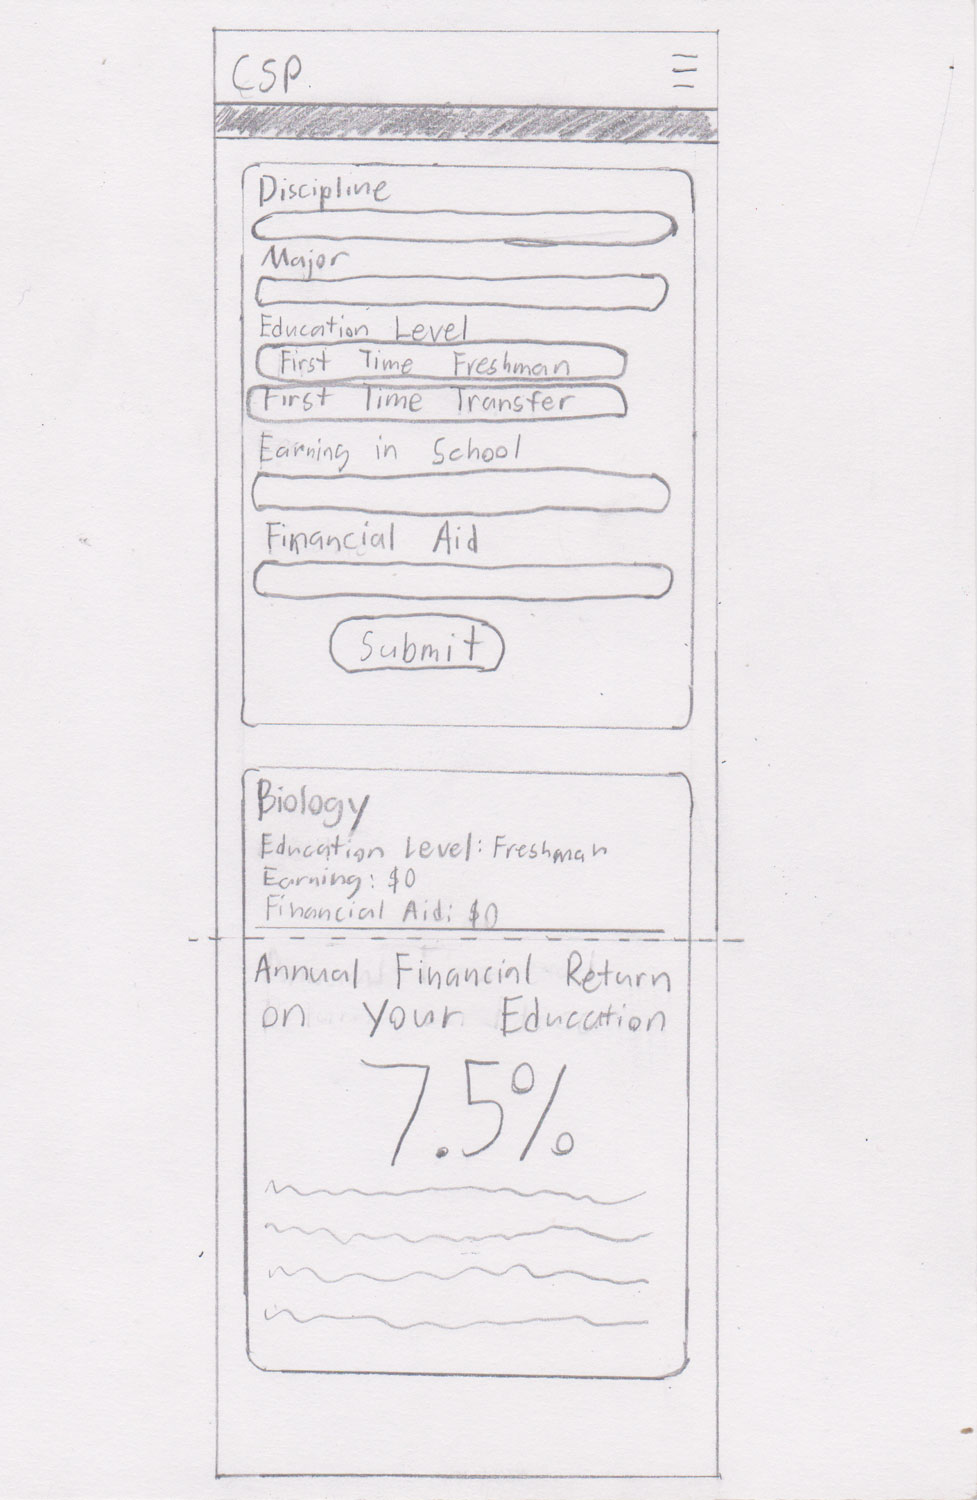 CSP
Discipline
Major
Education Level
First Time Freshman
First Time Transfer
Earning in School
Financial Aid
Submit
Biology
Education Level: Freshman
Earning: $0
Financial Aid: $0
Annual Financial Return
on Your Education
7.5%